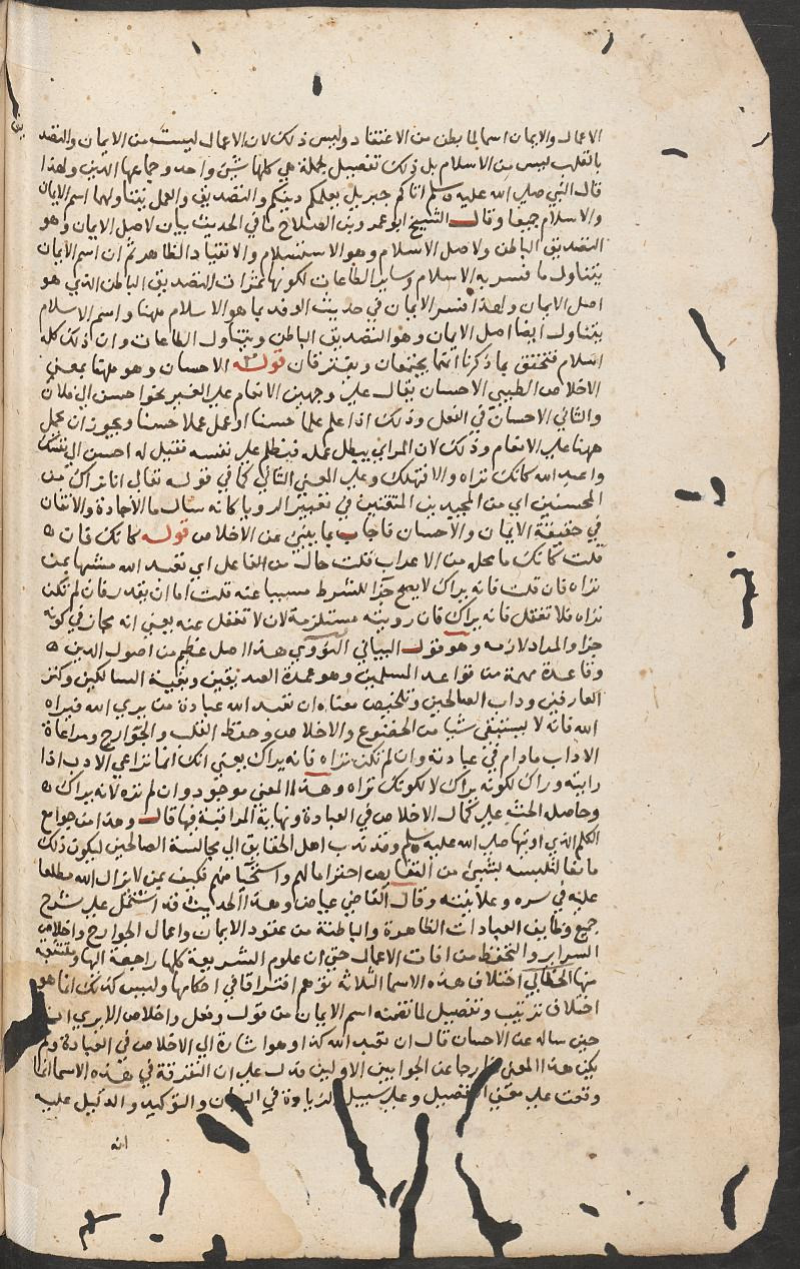 الاعمال والايمان اسما لما بطن من الاعتقاد وليس ذلك لان الاعمال ليست من الايمان والتصد
بالقلب ليس من الاسلام بل ذلك تفصيل لجملة هي كلها شيئ واحد وجماعها الدين ولهذا
قال النبي صلي الله عليه وسلم اتاكم جبريل يعلمكم دينكم والتصديق والعمل يتناولهما اسم الايمان
والاسلام جميعا وقال الشيخ ابو عمرو بن الصلاح ما في الحديث بيان لاصل الايمان وهو
التصديق الباطن ولاصل الاسلام وهو الاستسلام والانقياد الظاهر ثم ان اسم الايمان
يتناول ما فسر به الاسلام وساير الطاعات لكونها ثمرات التصديق الباطن الذي هو
اصل الايمان ولهذا فسر الايمان في حديث الوفد بما هو الاسلام ههنا واسم الاسلام
يتناول ايضا اصل الايمان وهو التصديق الباطن ويتناول الطاعات وان ذلك كله
اسلام فتحقق بما ذكرنا انهما يجتمعان ويفترقان قوله الاحسان وهو ههنا بمعني
الاخلاص الطيبي الاحسان يقال علي وجهين الانعام علي الغير نحو احسن الي فلان
والثاني الاحسان في الفعل وذلك اذا علم علما حسنا او عمل عملا حسنا ويجوز ان يحمل
ههنا علي الانعام وذلك لان المرايي يبطل عمله فيظلم علي نفسه فقيل له احسن الي نفسك
واعبد الله كانك تراه والا فتهلك وعلي المعني الثاني كما في قوله تعالي انا نراك من
المحسنين اي من المجيدين المتقنين في تعبير الرويا كانه سال ما الاجادة والاتقان
في حقيقة الايمان والاحسان فاجاب بما ينبئ عن الاخلاص قوله كانك فان
قلت كانك ما محله من الاعراب قلت حال من الفاعل اي تعبد الله مشبها بمن
تراه فان قلت فانه يراك لا يصح جزا للشرط مسببا عنه قلت اما ان يقدر فان لم تكن
تراه فلا تغفل فانه يراك فان رويته مستلزمة لان لا تغفل عنه يعني انه مجاز في كونه
جزا والمراد لازمه وهو قول البياني النووي هذا اصل عظيم من اصول الدين
وقاعدة مهمة من قواعد المسلمين وهو عمدة الصديقين وبغية السالكين وكنز
العارفين وداب الصالحين وتلخيص معناه ان تعبد الله عبادة من يري الله فيراه
الله فانه لا يستبقي شيا من الخضوع والاخلاص وحفظ القلب والجوارح ومراعاة
الاداب مادام في عبادته وان لم تكن تراه فانه يراك يعني انك انما تراعي الادب اذا
رايته وراك لكونه يراك لا لكونك تراه وهذا المعني موجود وان لم تره لانه يراك
وحاصل الحث علي كمال الاخلاص في العبادة ونهاية المراقبة فيها قال وهذا من جوامع
الكلم الذي اوتيها صلي الله عليه وسلم وقد ندب اهل الحقايق الي مجالسة الصالحين ليكون ذلك
مانعا لتلبسه بشيئ من النقايص احتراما لهم واستحيا منهم فكيف بمن لا يزال الله مطلعا
عليه في سره وعلانيته وقال القاضي عياض وهذا الحديث قد اشتمل علي شرح
جميع وظايف العبادات الظاهرة والباطنة من عقود الايمان واعمال الجوارح واخلاص
السراير والتحفظ من افات الاعمال حتي ان علوم الشريعة كلها راجعة اليها ومتشعبة
منها الخطابي اختلاف هذه الاسما الثلاثة توهم افتراقا في احكامها وليس كذلك انما هو
اختلاف ترتيب وتفصيل لما تضمنه اسم الايمان من قول وفعل واخلاص الا يري انه
حين ساله عن الاحسان قال ان تعبد الله كذا وهو اشارة الي الاخلاص في العبادة ولم
يكن هذا المعني خارجا عن الجوابين الاولين فدل علي ان التفرقة في هذه الاسما انما
وقعت علي معني التفصيل وعلي سبيل الزيادة في البيان والتوكيد والدليل عليه
انه